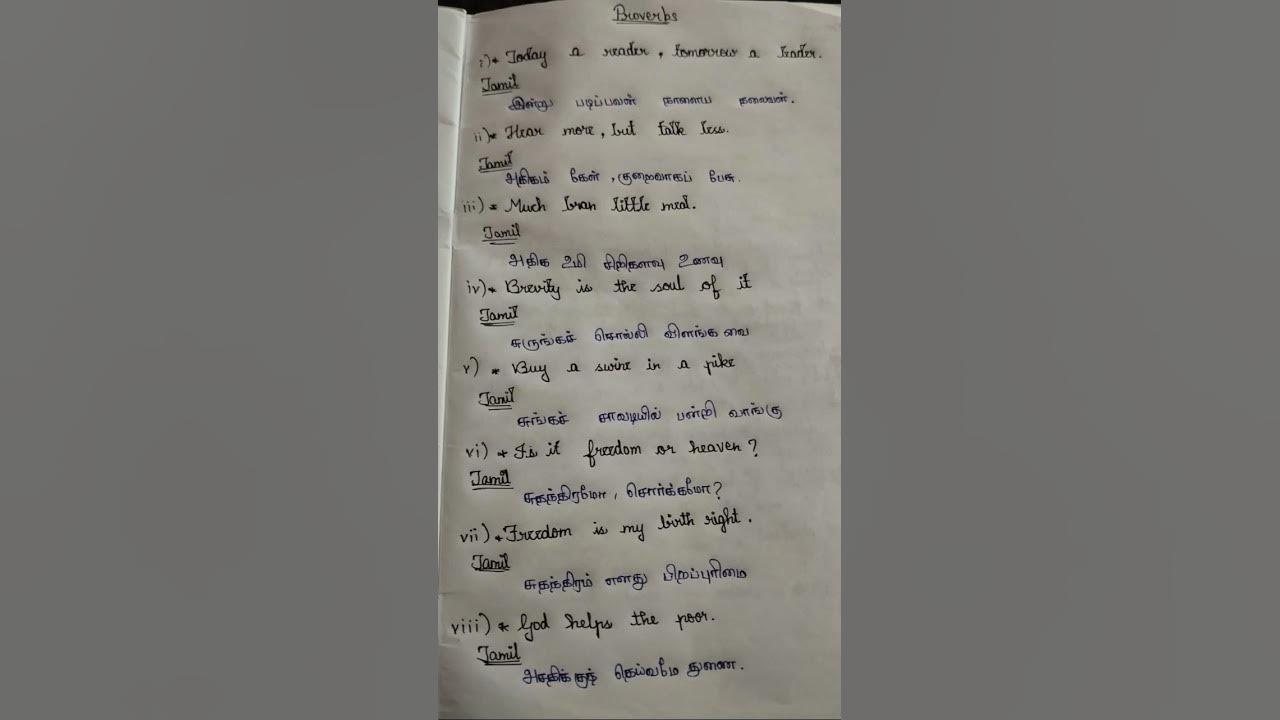 Proverbs
i)* Today a reader, tomorrow a leader.
Tamil
இன்று படிப்பவன் நாளைய தலைவன்.
ii)* Hear more, but talk less.
Tamil
அதிகம் கேள், குறைவாகப் பேசு.
iii)* Much bran little meal.
Tamil
அதிக உமி சிறிதளவு உணவு
iv)* Brevity is the soul of it
Tamil
சுருங்கச் சொல்லி விளங்க வை
v) * Buy a swine in a pike
Tamil
சுங்கச் சாவடியில் பன்றி வாங்கு
vi) * Is it freedom or heaven?
Tamil
சுதந்திரமோ, சொர்க்கமோ?
vii) * Freedom is my birth right.
Tamil
சுதந்திரம் எனது பிறப்புரிமை
viii) * God helps the poor.
Tamil
தெய்வமே துணை.